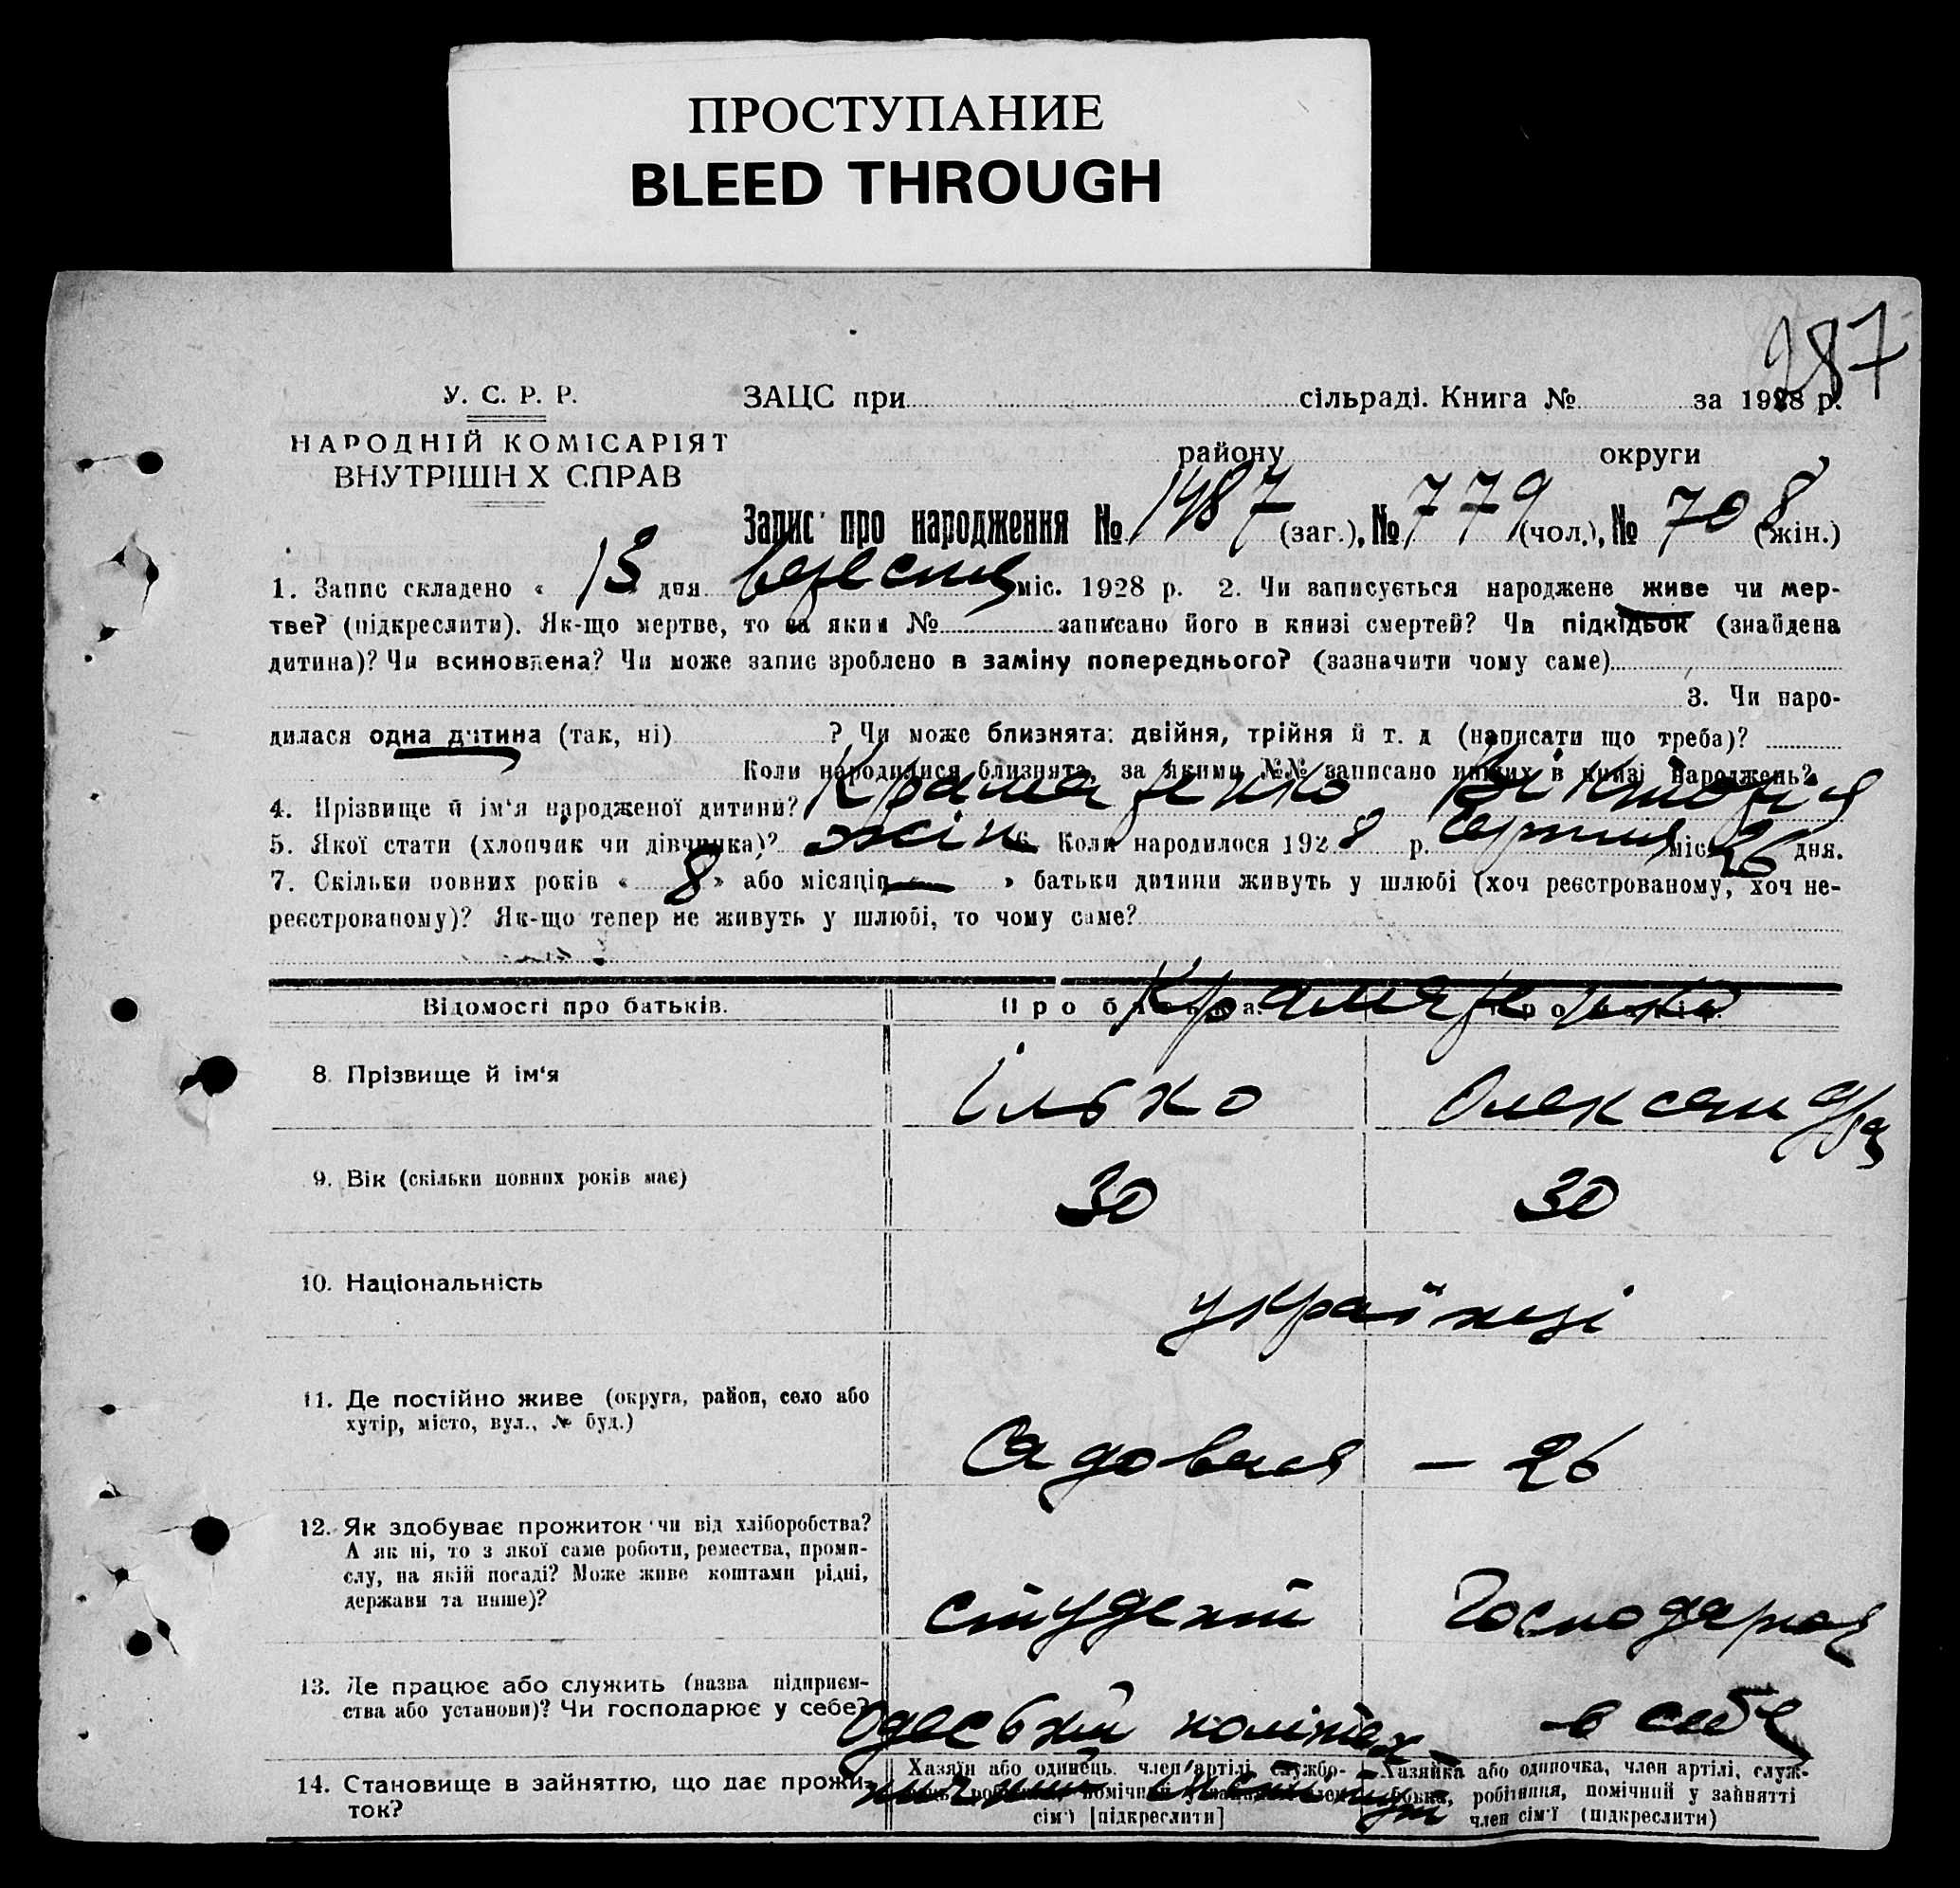 ПРОСТУПАНИЕ
BLEED THROUGH
287
У. С. Р. Р.
НАРОДНІЙ КОМІСАРІЯТ
ВНУТРІШН Х СПРАВ
ЗАЦС при сільраді. Книга № за 1928 р.
району округи
Запис про народження № 1487 (заг.), № 779 (чол.), № 708 (жін.)
1. Запис складено « 13 » дня вересня міс. 1928 р. 2. Чи записується народжене живе чи мер-
тве? (підкреслити). Як-що мертве, то за яким № записано його в книзі смертей? Чи підкідьок (знайдена
дитина)? Чи всиновлена? Чи може запис зроблено в заміну попереднього? (зазначити чому саме)
3. Чи наро-
дилася одна дитина (так, ні) ? Чи може близнята: двійня, трійня й т. д (написати що треба)?
Коли народилися близнята, за якими №№ записано инших в книзі народжень?
4. Прізвище й ім'я народженої дитини? Крамаренко Вікторія
5. Якої стати (хлопчик чи дівчинка)? жін 6. Коли народилося 1928 р. серпня міс. 26 дня.
7. Скільки повних років « 8 » або місяців « — » батьки дитини живуть у шлюбі (хоч реєстрованому, хоч не-
реєстрованому)? Як-що тепер не живуть у шлюбі, то чому саме?
Відомості про батьків.
Про батька.
Про матір.
Крамаренко
8. Прізвище й ім'я
Ілько
Олександра
9. Вік (скільки повних років має)
30
30
10. Національність
українці
11. Де постійно живе (округа, район, село або
хутір, місто, вул., № буд.)
Садовая — 26
12. Як здобуває прожиток чи від хліборобства?
А як ні, то з якої саме роботи, ремества, проми-
слу, на якій посаді? Може живе коштами рідні,
держави та инше)?
студент
Господарка
13. Де працює або служить (назва підприєм-
ства або установи)? Чи господарює у себе?
Одеський політех-
нічний інститут
в себе
14. Становище в зайняттю, що дає прожи-
ток?
Хазяїн або одинець. член артілі, службо-
сім'ї [підкреслити]
Хазяйка або одиночка, член артілі, служ-
бовка, робітниця, помічний у зайнятті
член сім'ї (підкреслити)